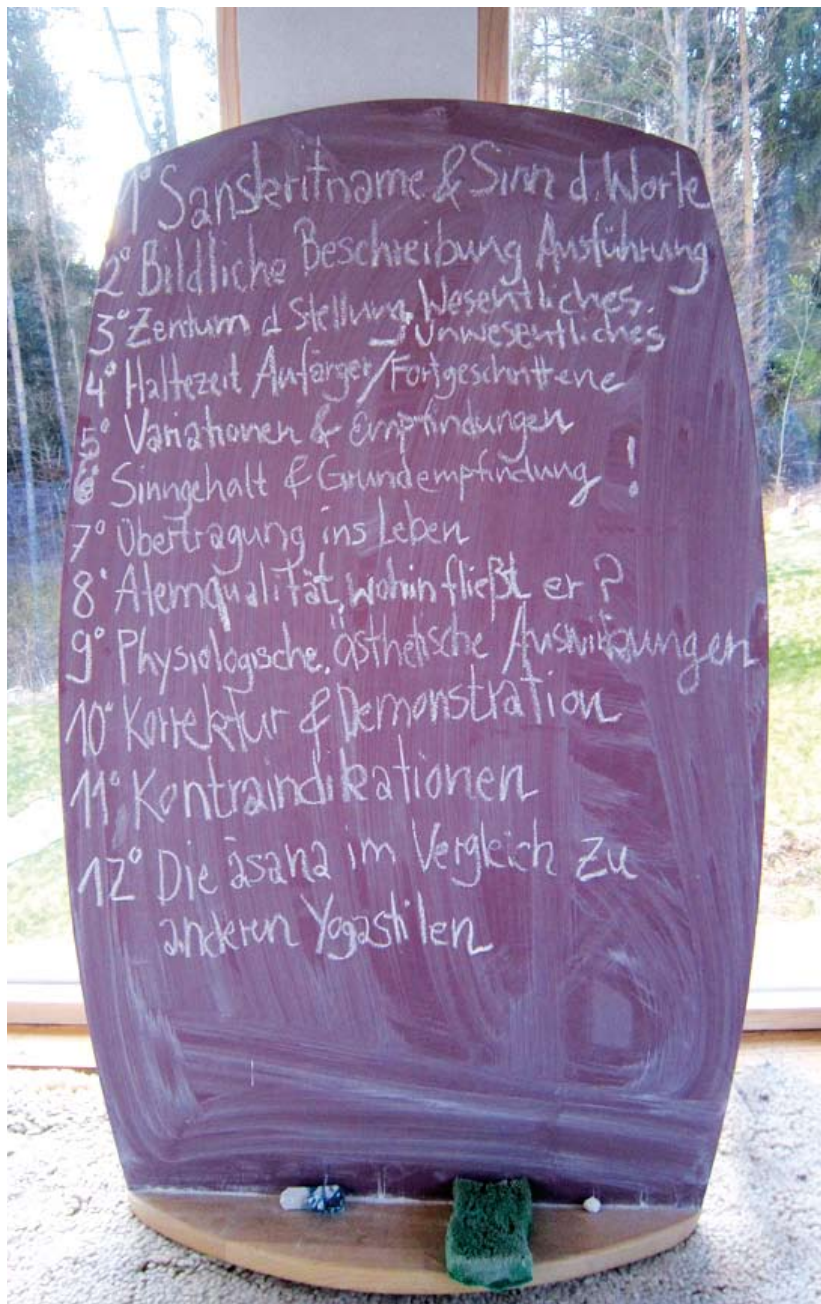 1° Sanskritname & Sinn d. Worte
2° Bildliche Beschreibung Ausführung
3° Zentum d Stellung, Wesentliches,
Unwesentliches
4° Haltezeit Anfänger/Fortgeschrittene
5° Variationen & Empfindungen
6° Sinngehalt & Grundempfindung !
7° Übertragung ins Leben
8° Atemqualität, wohin fließt er?
9° Physiologische, ästhetische Auswirkungen
10° Korrektur & Demonstration
11° Kontraindikationen
12° Die āsana im Vergleich zu
anderen Yogastilen